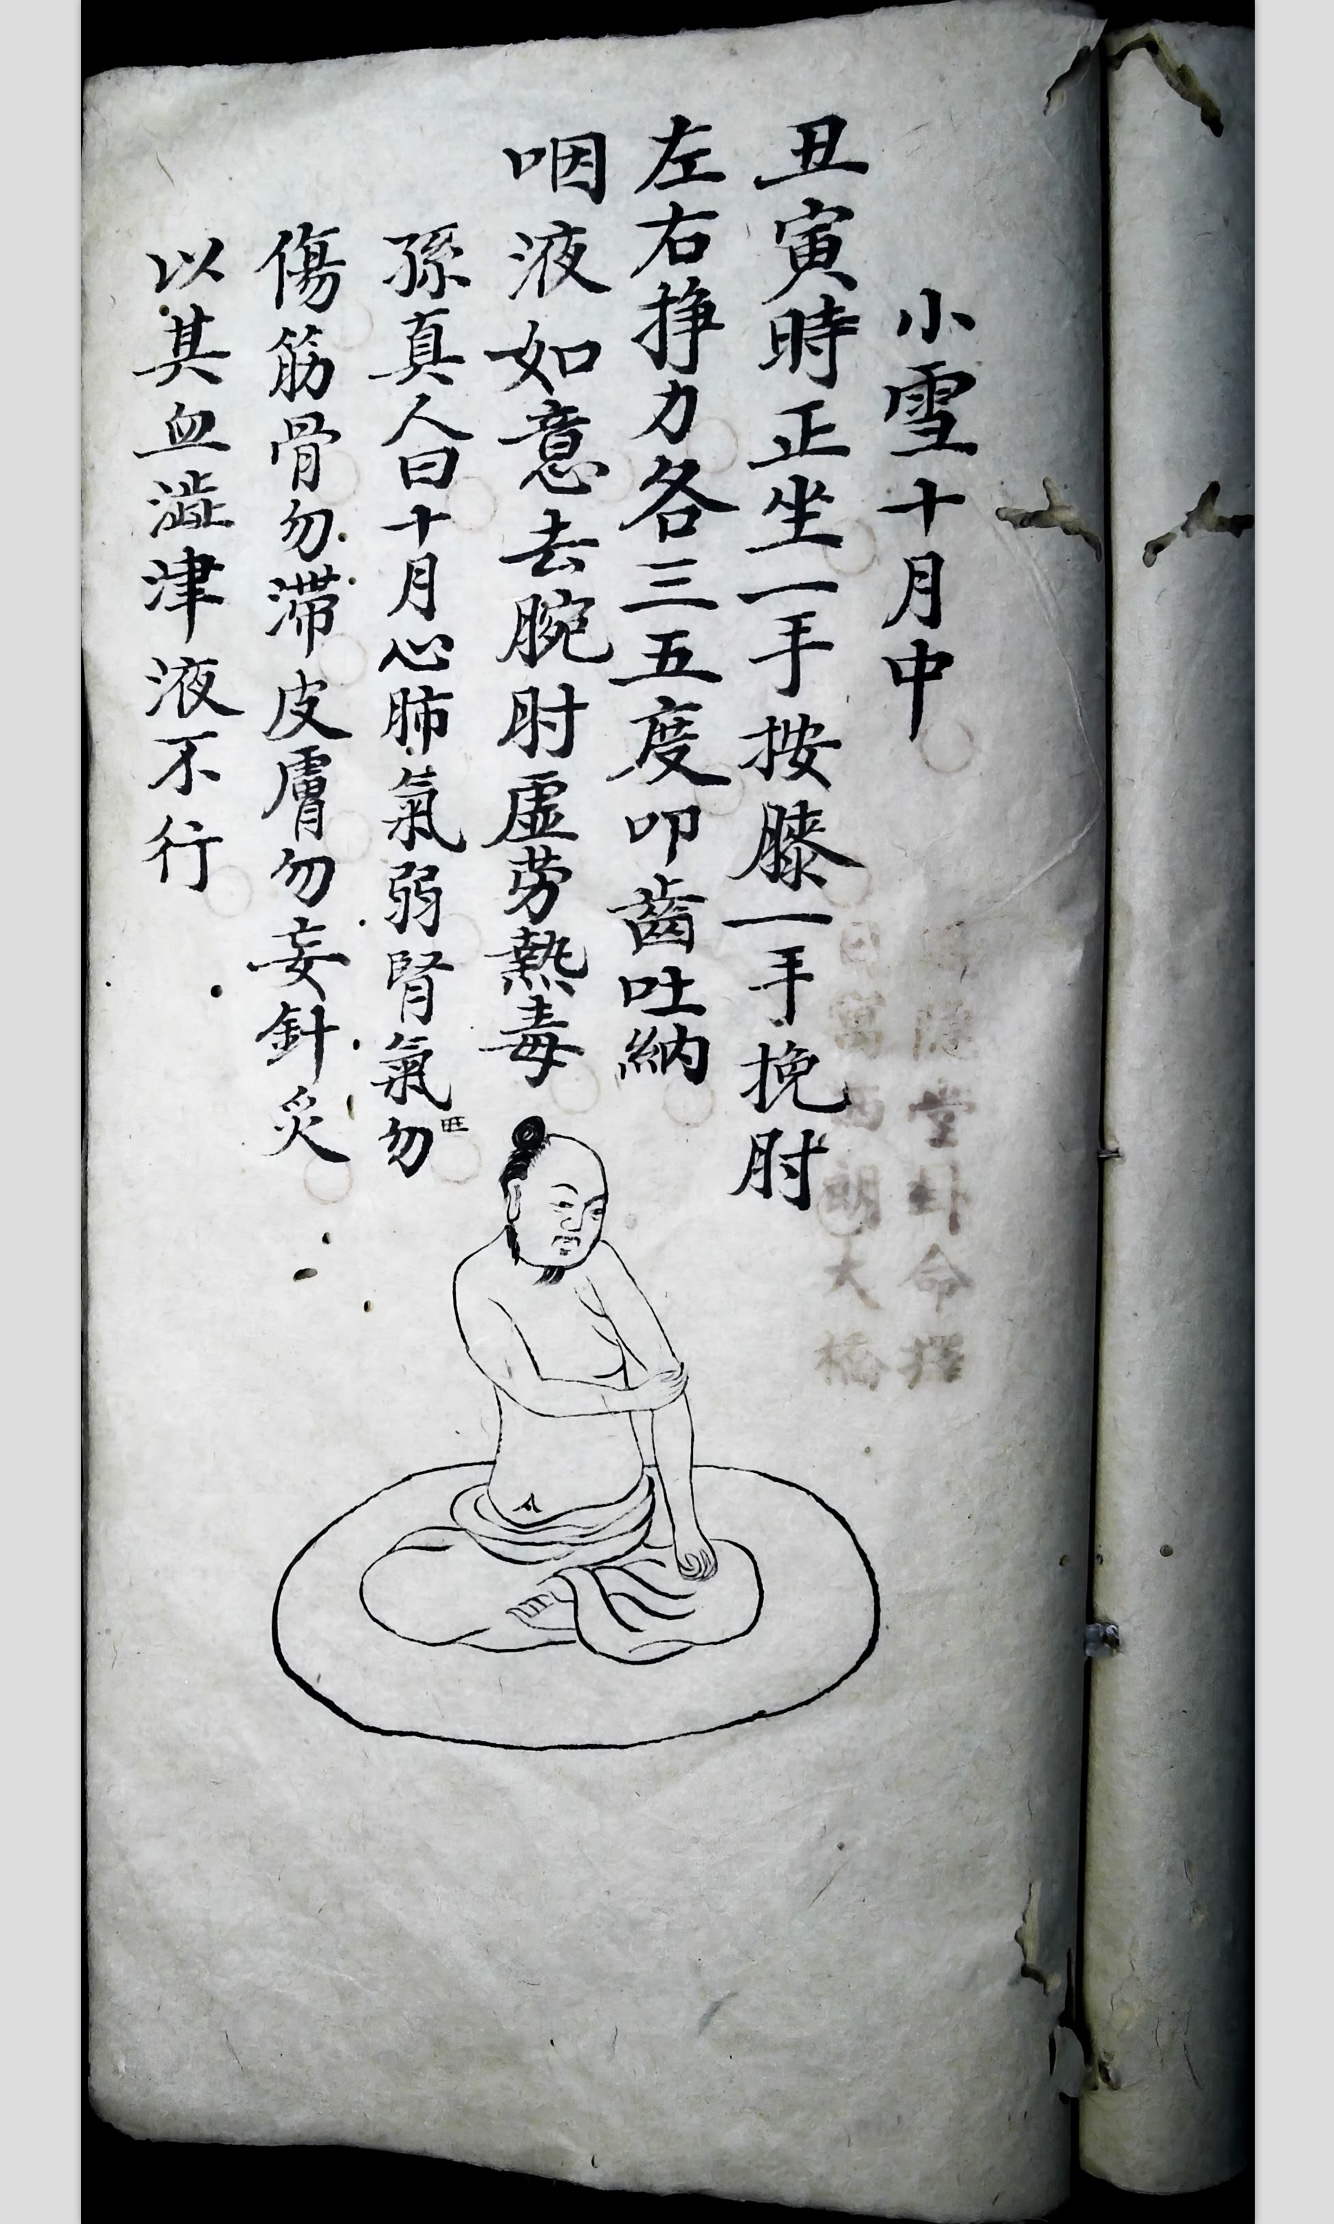 小雪十月中
丑寅時正坐一手按膝一手挽肘
左右掙力各三五度叩齒吐納
咽液如意去腕肘虛劳熱毒
孫真人曰十月心肺氣弱腎氣旺勿
傷筋骨勿滞皮膚勿妄針灸
以其血澁津液不行
堂卦命擇
西朗大橋